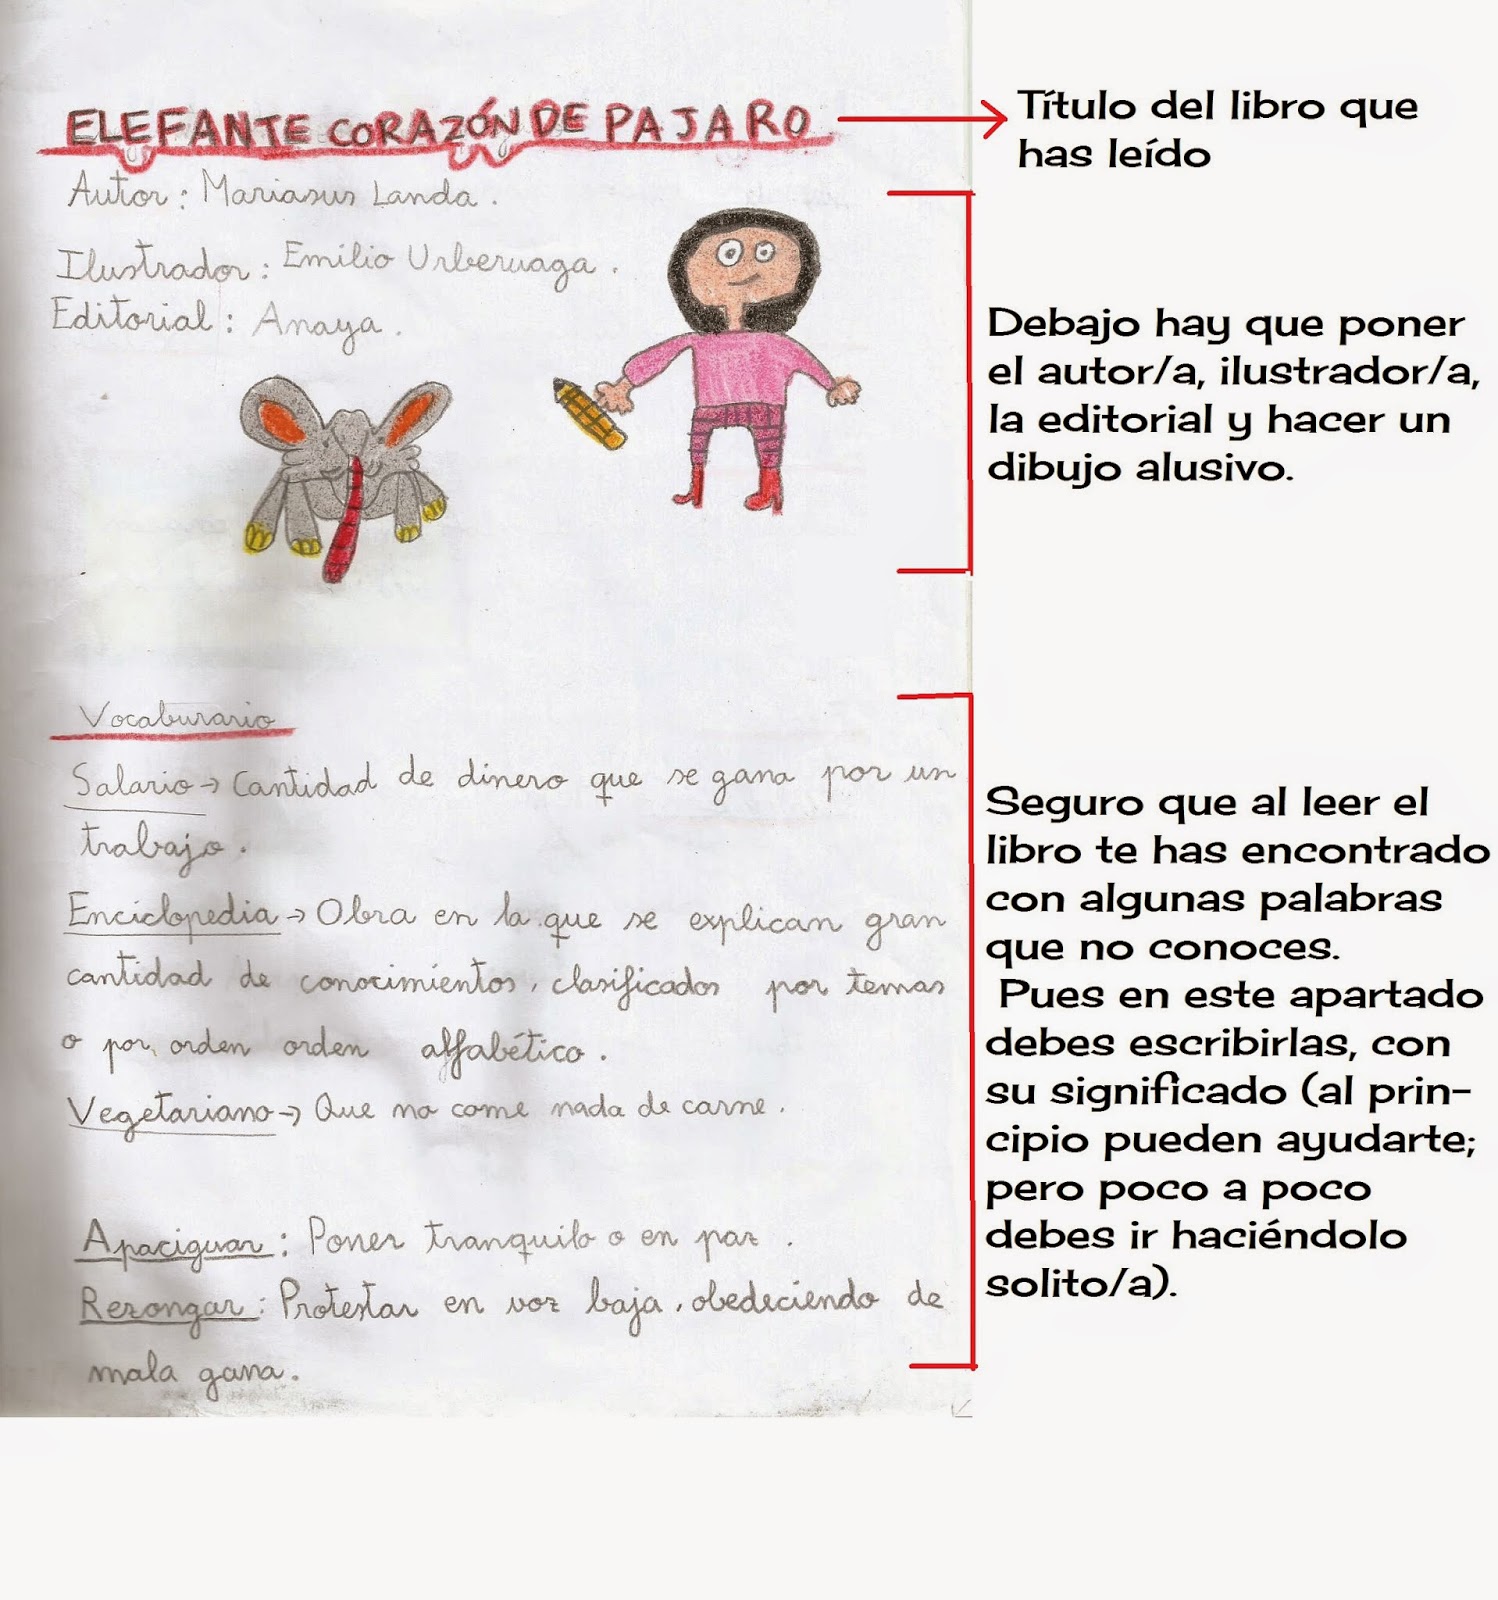 ELEFANTE CORAZÓN DE PAJARO
Autor: Mariasus Landa.
Ilustrador: Emilio Urberuaga.
Editorial: Anaya.
Vocaburario
Salario → Cantidad de dinero que se gana por un
trabajo.
Enciclopedia → Obra en la que se explican gran
cantidad de conocimientos, clasificados por temas
o por orden orden alfabético.
Vegetariano → Que no come nada de carne.
Apaciguar: Poner tranquilo o en paz.
Rezongar: Protestar en voz baja, obedeciendo de
mala gana.
Título del libro que
has leído
Debajo hay que poner
el autor/a, ilustrador/a,
la editorial y hacer un
dibujo alusivo.
Seguro que al leer el
libro te has encontrado
con algunas palabras
que no conoces.
Pues en este apartado
debes escribirlas, con
su significado (al prin-
cipio pueden ayudarte;
pero poco a poco
debes ir haciéndolo
solito/a).